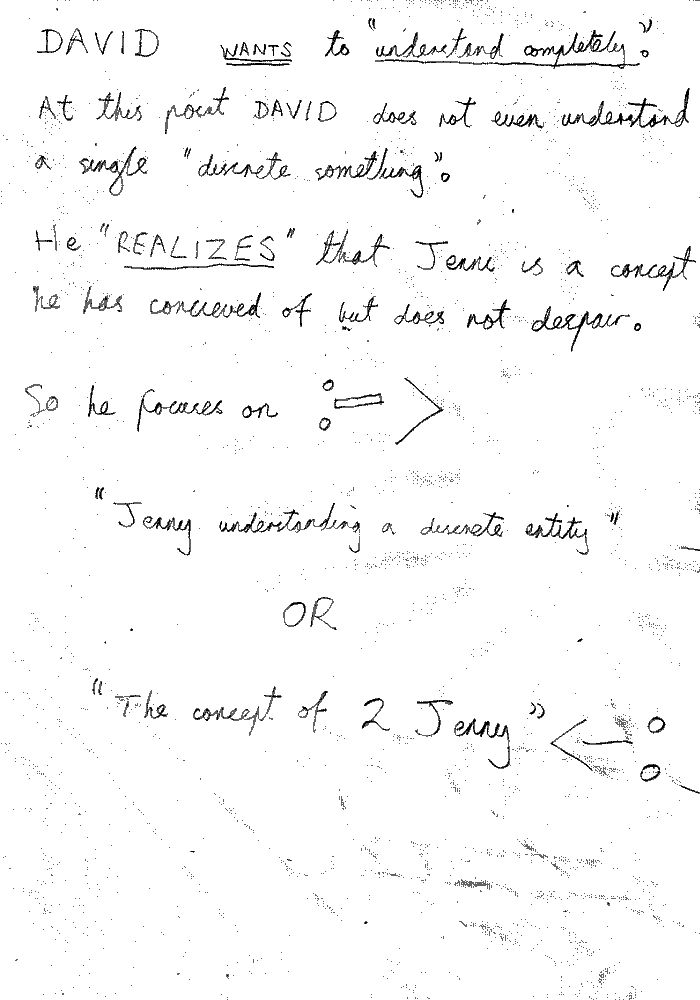 DAVID WANTS to "understand completely".
At this point DAVID does not even understand
a single "discrete something".
He "REALIZES" that Jenni is a concept
he has concieved of but does not despair.
So he focuses on
"Jenny understanding a discrete entity"
OR
"The concept of 2 Jenny"